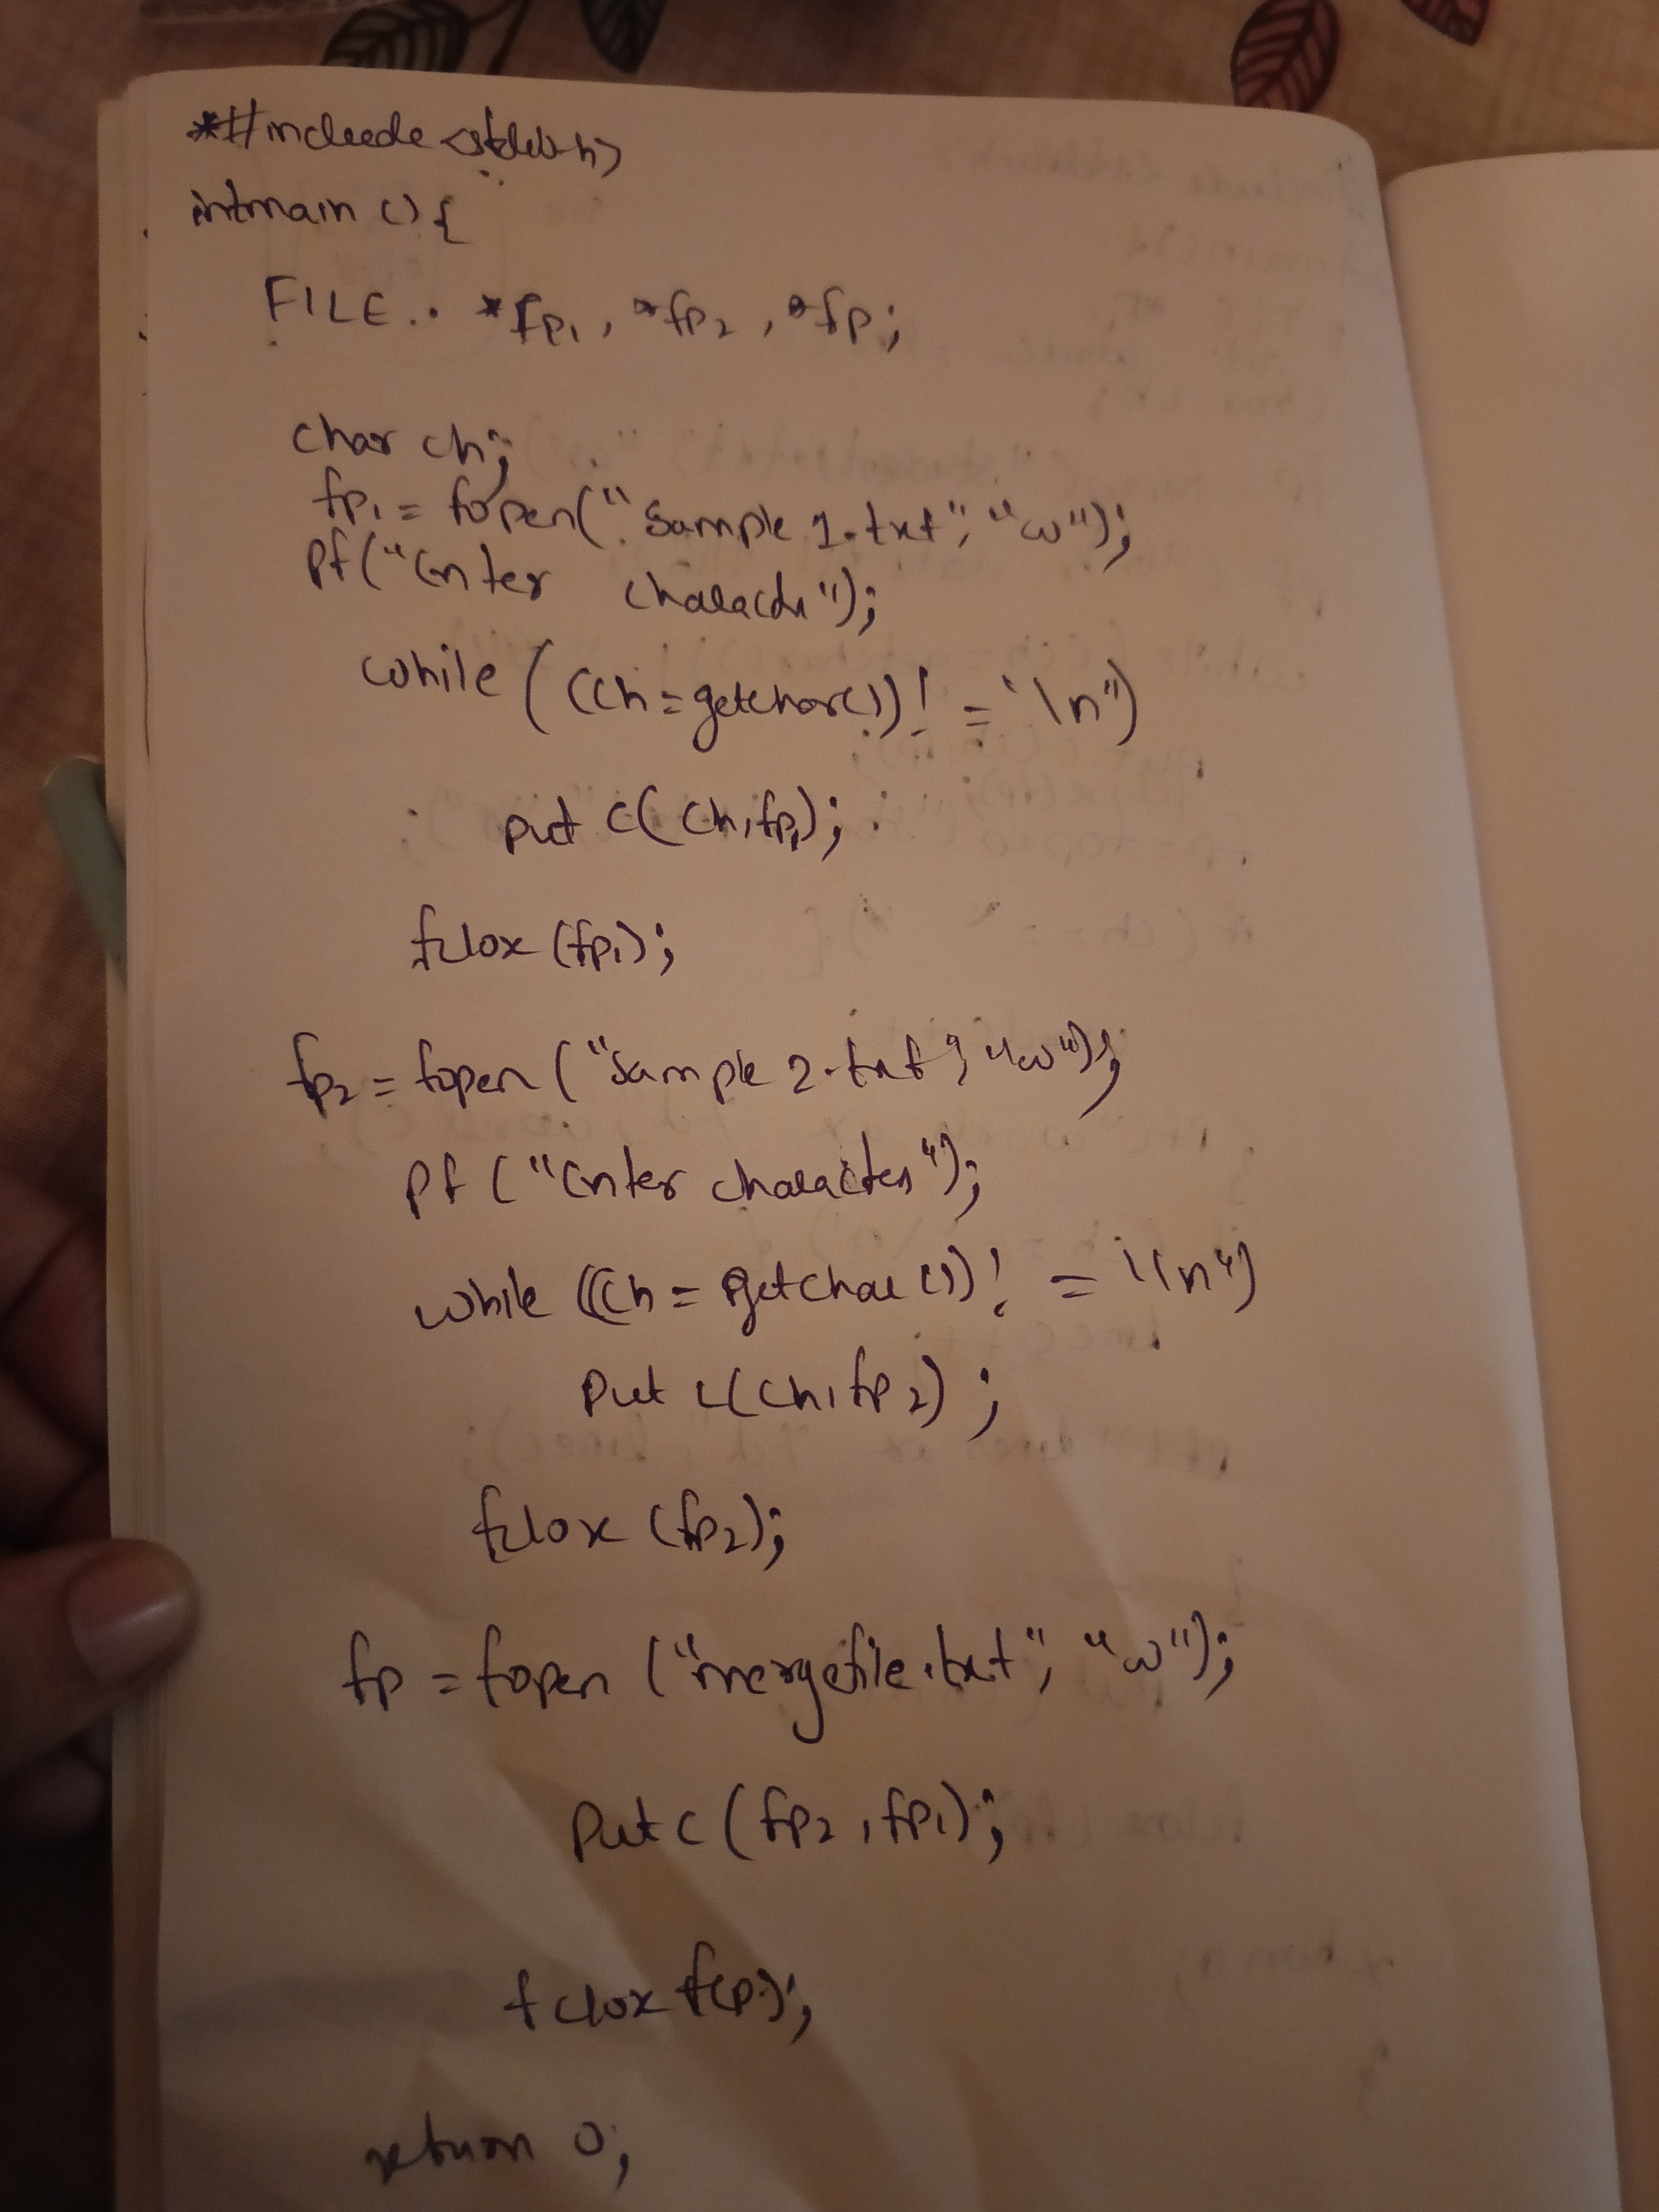 *#include <stdlib.h>
intmain () {
FILE.. *fp1, *fp2, *fp;
char ch;
fp1 = fopen("Sample 1.txt", "w");
Pf("Enter
while ((ch=getchar())! = '\n')
put c(ch,fp1);
fclox (fp1);
fp2 = fopen ("Sample 2.txt", "w");
Pf ("Enter character");
while ((ch = getchar ())! = '\n')
Put c(ch, fp2) ;
fclox (fp2);
fp = fopen ("mergefile.txt", "w");
Put c (fp2, fp1);
fclox f(p);
return 0;